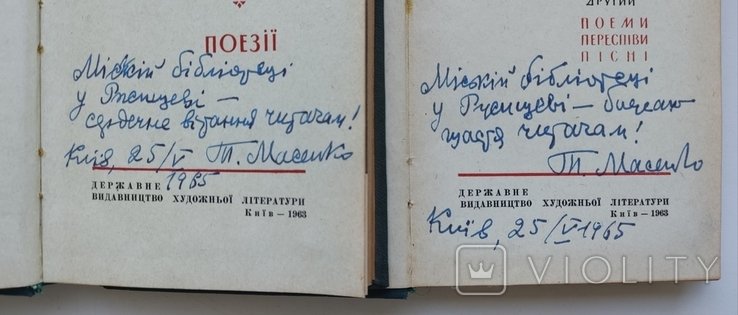 ПОЕЗІЇ
Міській бібліотеці
у Ржищеві —
сердечне вітання читачам!
Київ, 25/V Т. Масенко
1965
ДЕРЖАВНЕ
ВИДАВНИЦТВО ХУДОЖНЬОЇ ЛІТЕРАТУРИ
Київ — 1963
ДРУГИЙ
ПОЕМИ
ПЕРЕСПІВИ
ПІСНІ
Міській бібліотеці
у Ржищеві — бажаю
щастя читачам!
Т. Масенко
ДЕРЖАВНЕ
ВИДАВНИЦТВО ХУДОЖНЬОЇ ЛІТЕРАТУРИ
Київ — 1963
Київ, 25/V 1965
VIOLITY